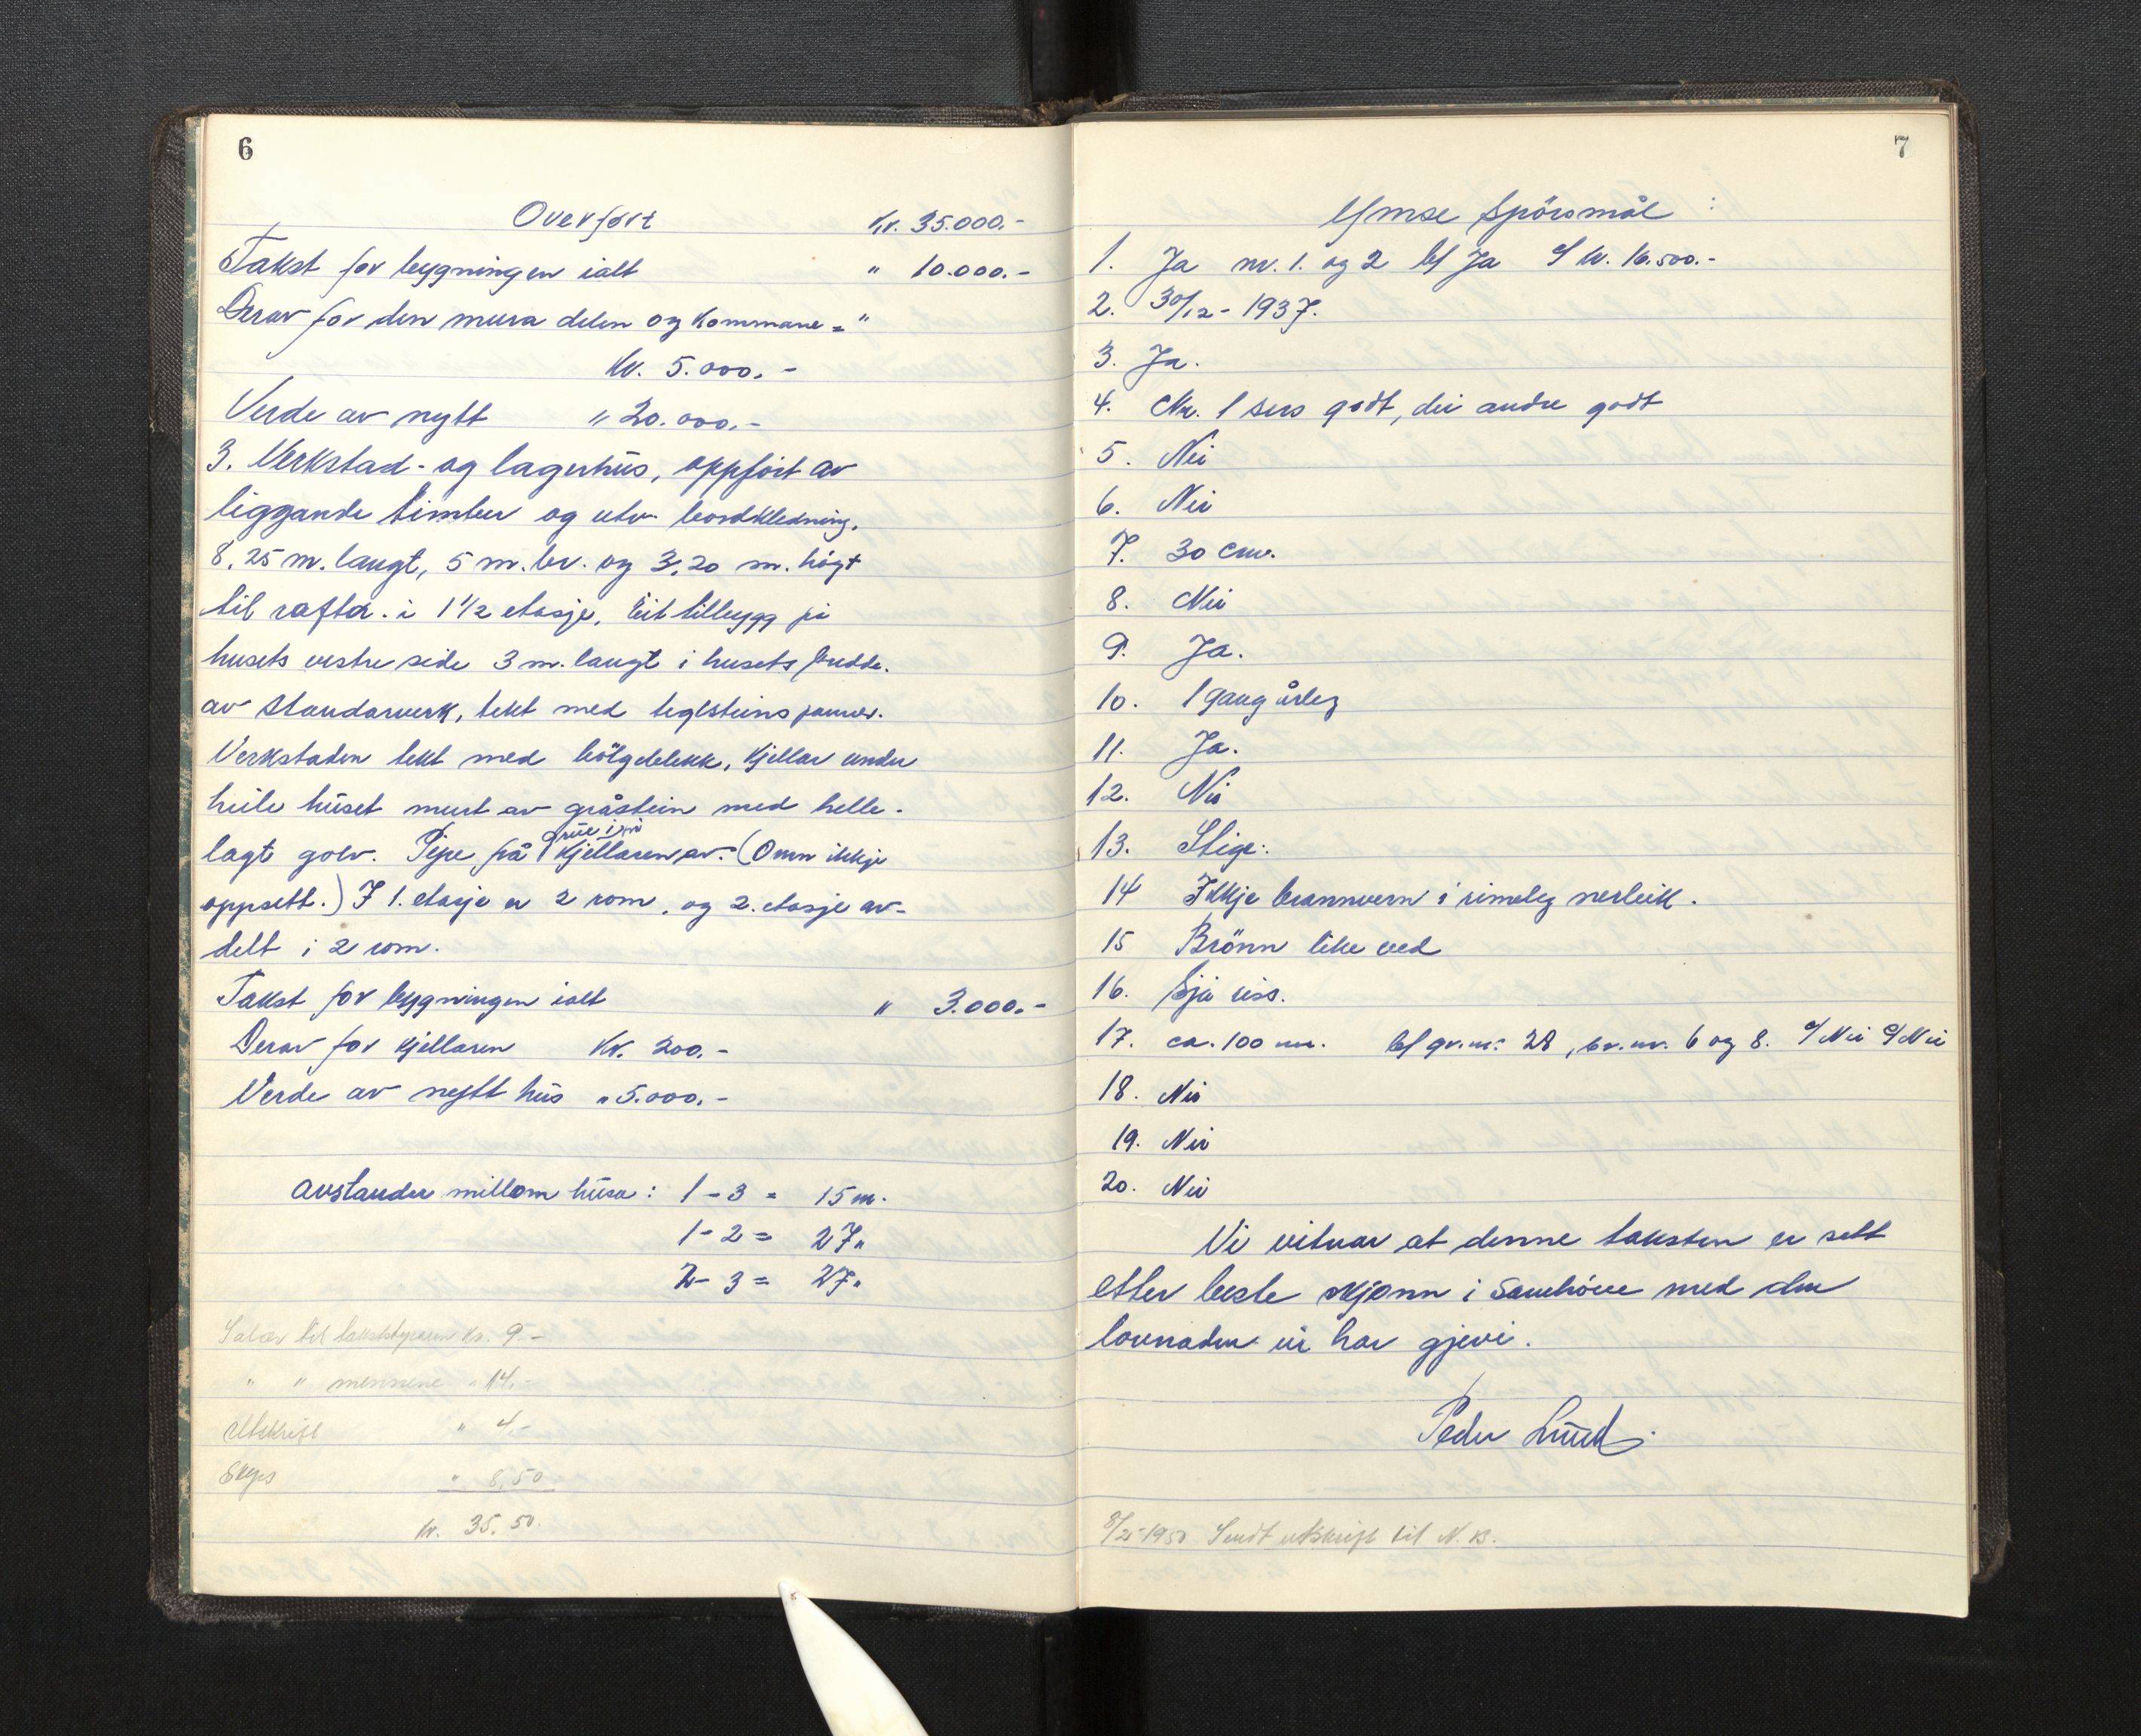 6
Overført Kr. 35.000.-
Takst for bygningen ialt " 10.000.-
Derav for den mura delen og kommane = "
Kr. 5.000.-
Verde av nytt " 20.000.-
3. Verkstad- og lagerhus, oppført av
liggande timber og utv. bordkledning.
8,25 m. langt, 5 m. br. og 3,20 m. högt
til rafta. i 1 1/2 etasje. Eit tilbygg på
husets vestre side 3 m. langt i husets bredde.
av standarverk, tekt med teglsteinspanner.
Verkstaden tekt med bölgeblekk, Kjellar under
heile huset murt av gråstein med helle-
lagt golv. Pipe frå grue i
kjellaren av. (Omn ikkje
oppsett.) I 1. etasje er 2 rom, og 2. etasje av-
delt i 2 rom.
Takst for bygningen ialt " 3.000.-
Derav for kjellaren Kr. 200.-
Verde av nytt hus " 5.000.-
Avstander millom husa: 1 - 3 = 15 m.
1 - 2 = 27 "
2 - 3 = 27 "
Salær til takststyraren Kr. 9.-
" " mennene " 14.-
Utskrift " 4.-
Skyss " 8,50
kr. 35.50.
7
Ymse Spörsmål :
1. Ja nr. 1. og 2 b/ Ja c/ kr. 16.500.-
2. 30/12 - 1937.
3. Ja.
4. Nr. 1 sers godt, dei andre godt
5. Nei
6. Nei
7. 30 cm.
8. Nei
9. Ja.
10. 1 gang årleg
11. Ja.
12. Nei
13. Stige.
14 Ikkje brannvern i rimeleg nerleik.
15 Brönn like ved
16. Sjå riss.
17. ca. 100 m. b/ gr.nr. 28, br.nr. 6 og 8. c/ Nei d/ Nei
18. Nei
19. Nei
20. Nei
Vi vitnar at denne taksten er sett
etter beste skjønn i samhöve med den
lovnaden vi har gjevi.
Peder Lund.
1950 Sendt utskrift til N. B.